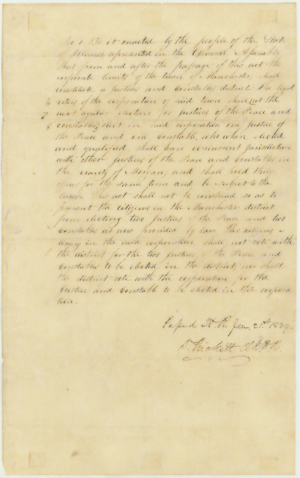 Sec 1 Be it enacted by the people of the State
of Illinois represented in the General Assembly
that from and after the passage of this act the
corporate limits of the town of Manchester shall
constitute a justices and constables district. The legal
voters of the corporation of said town shall at the
next regular election for justices of the Peace and
constables elect in said corporation one justice of
the Peace and one constable, who when elected
and qualified shall have concurrent jurisdiction
with other justices of the Peace and constables in
the county of Morgan, and shall hold their
office for the same term and be subject to the
This act shall not be construed so as to
prevent the citizens in the Manchester district
from electing two justices of the Peace and two
constables as now provided by law the citizens
living in the said corporation shall not vote with
the district for the two justices of the Peace and
constables to be elected in the district, nor shall
the district vote with the corporation for the
justice and constable to be elected in the corpora
tion.
Passed H. R. Jan. 21st 1839
D. Prickett